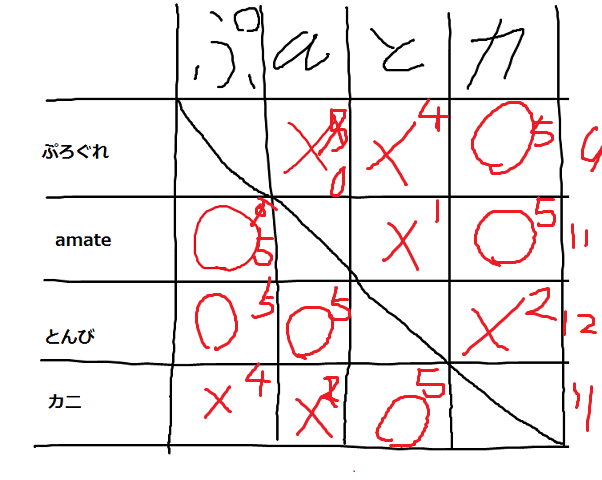 ぷ a と カ
ぷろぐれ × 0 × 4 ○ 5 9
amate ○ 5 × 1 ○ 5 11
とんび ○ 5 ○ 5 × 2 12
カニ × 4 × ○ 5 11